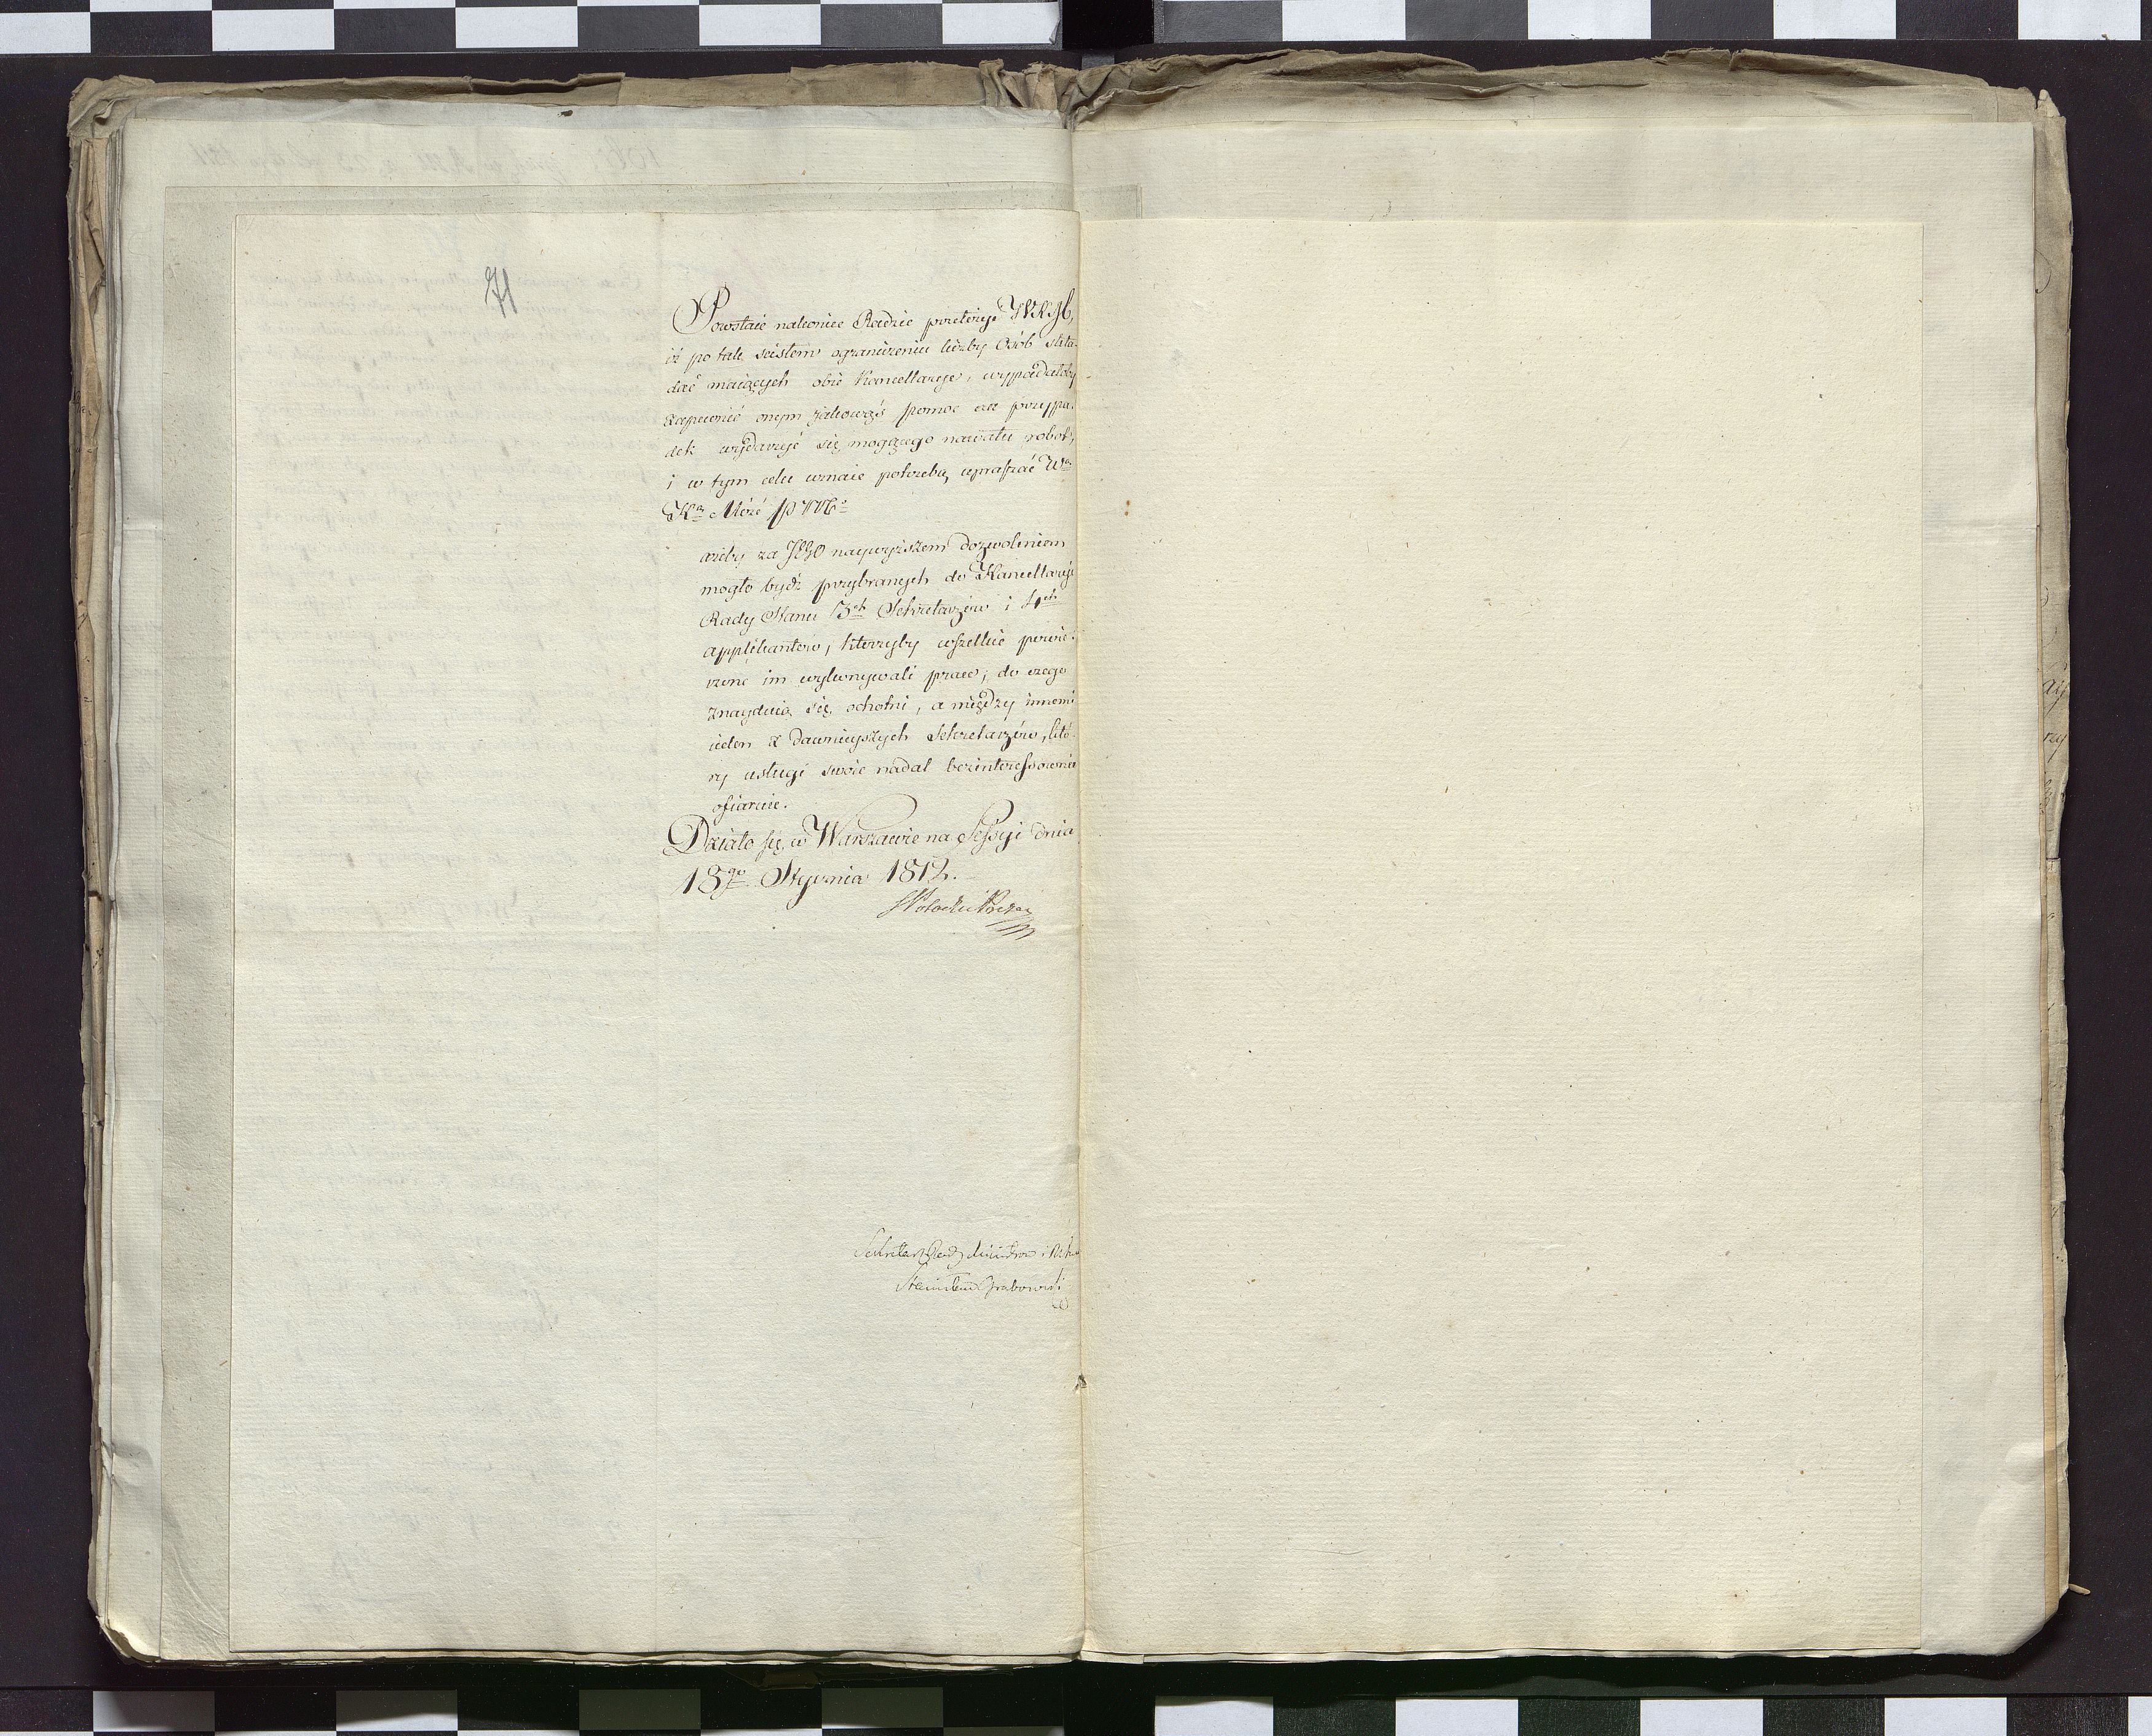 71
Powstaie nakoniec Radzie przełożyć WKM,
iż po tak scisłem ograniczeniu liczby Osób skła-
dać maiących obie Kancellarye, wypadałoby
zapewnić onym jakowąś pomoc na przypa-
dek wydarzyć się mogącego nawału robot,
i w tym celu uznaie potrzebę upraszać Wa
Ka Mość
ażeby za JEGO naywyższem dozwoleniem
mogło bydź przybranych do Kancellaryi
Rady Stanu 3ch Sekretarzów i 4ch
applikantów, którzyby wszelkie powie-
rzone im wykonywali prace; do czego
znayduią się ochotni, a między innemi
ieden z dawnieyszych Sekretarzów, któ-
ry usługi swoie nadal bezinteressownie
ofiaruie.
Działo się w Warszawie na Sessyi dnia
18go Stycznia 1812.
Potocki Prezes
Sekretarz Rady Ministrów i
Stanisław Grabowski